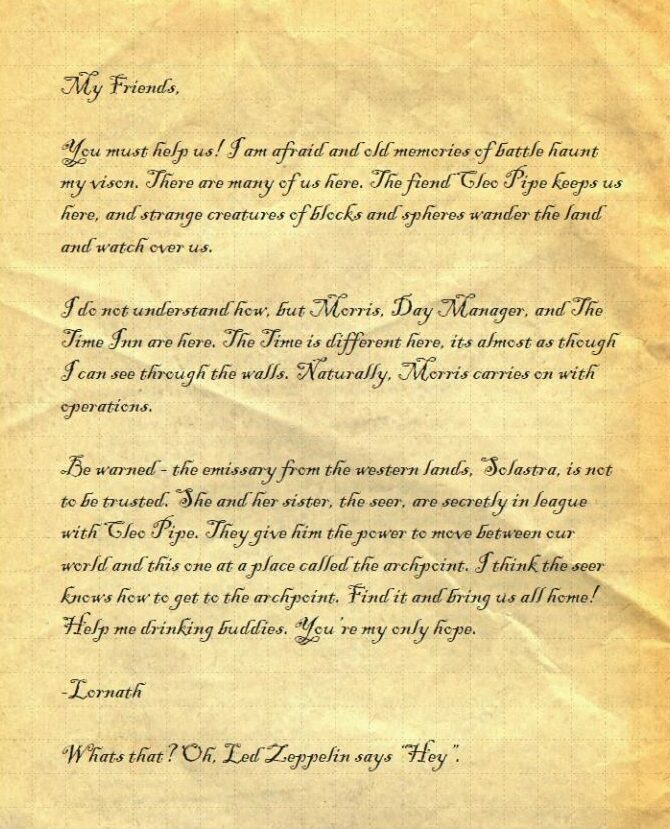 My Friends,
You must help us! I am afraid and old memories of battle haunt
my vison. There are many of us here. The fiend Cleo Pipe keeps us
here, and strange creatures of blocks and spheres wander the land
and watch over us.
I do not understand how, but Morris, Day Manager, and The
Time Inn are here. The Time is different here, its almost as though
I can see through the walls. Naturally, Morris carries on with
operations.
Be warned - the emissary from the western lands, Solastra, is not
to be trusted. She and her sister, the seer, are secretly in league
with Cleo Pipe. They give him the power to move between our
world and this one at a place called the archpoint. I think the seer
knows how to get to the archpoint. Find it and bring us all home!
Help me drinking buddies. You're my only hope.
-Lornath
Whats that? Oh, Led Zeppelin says "Hey".